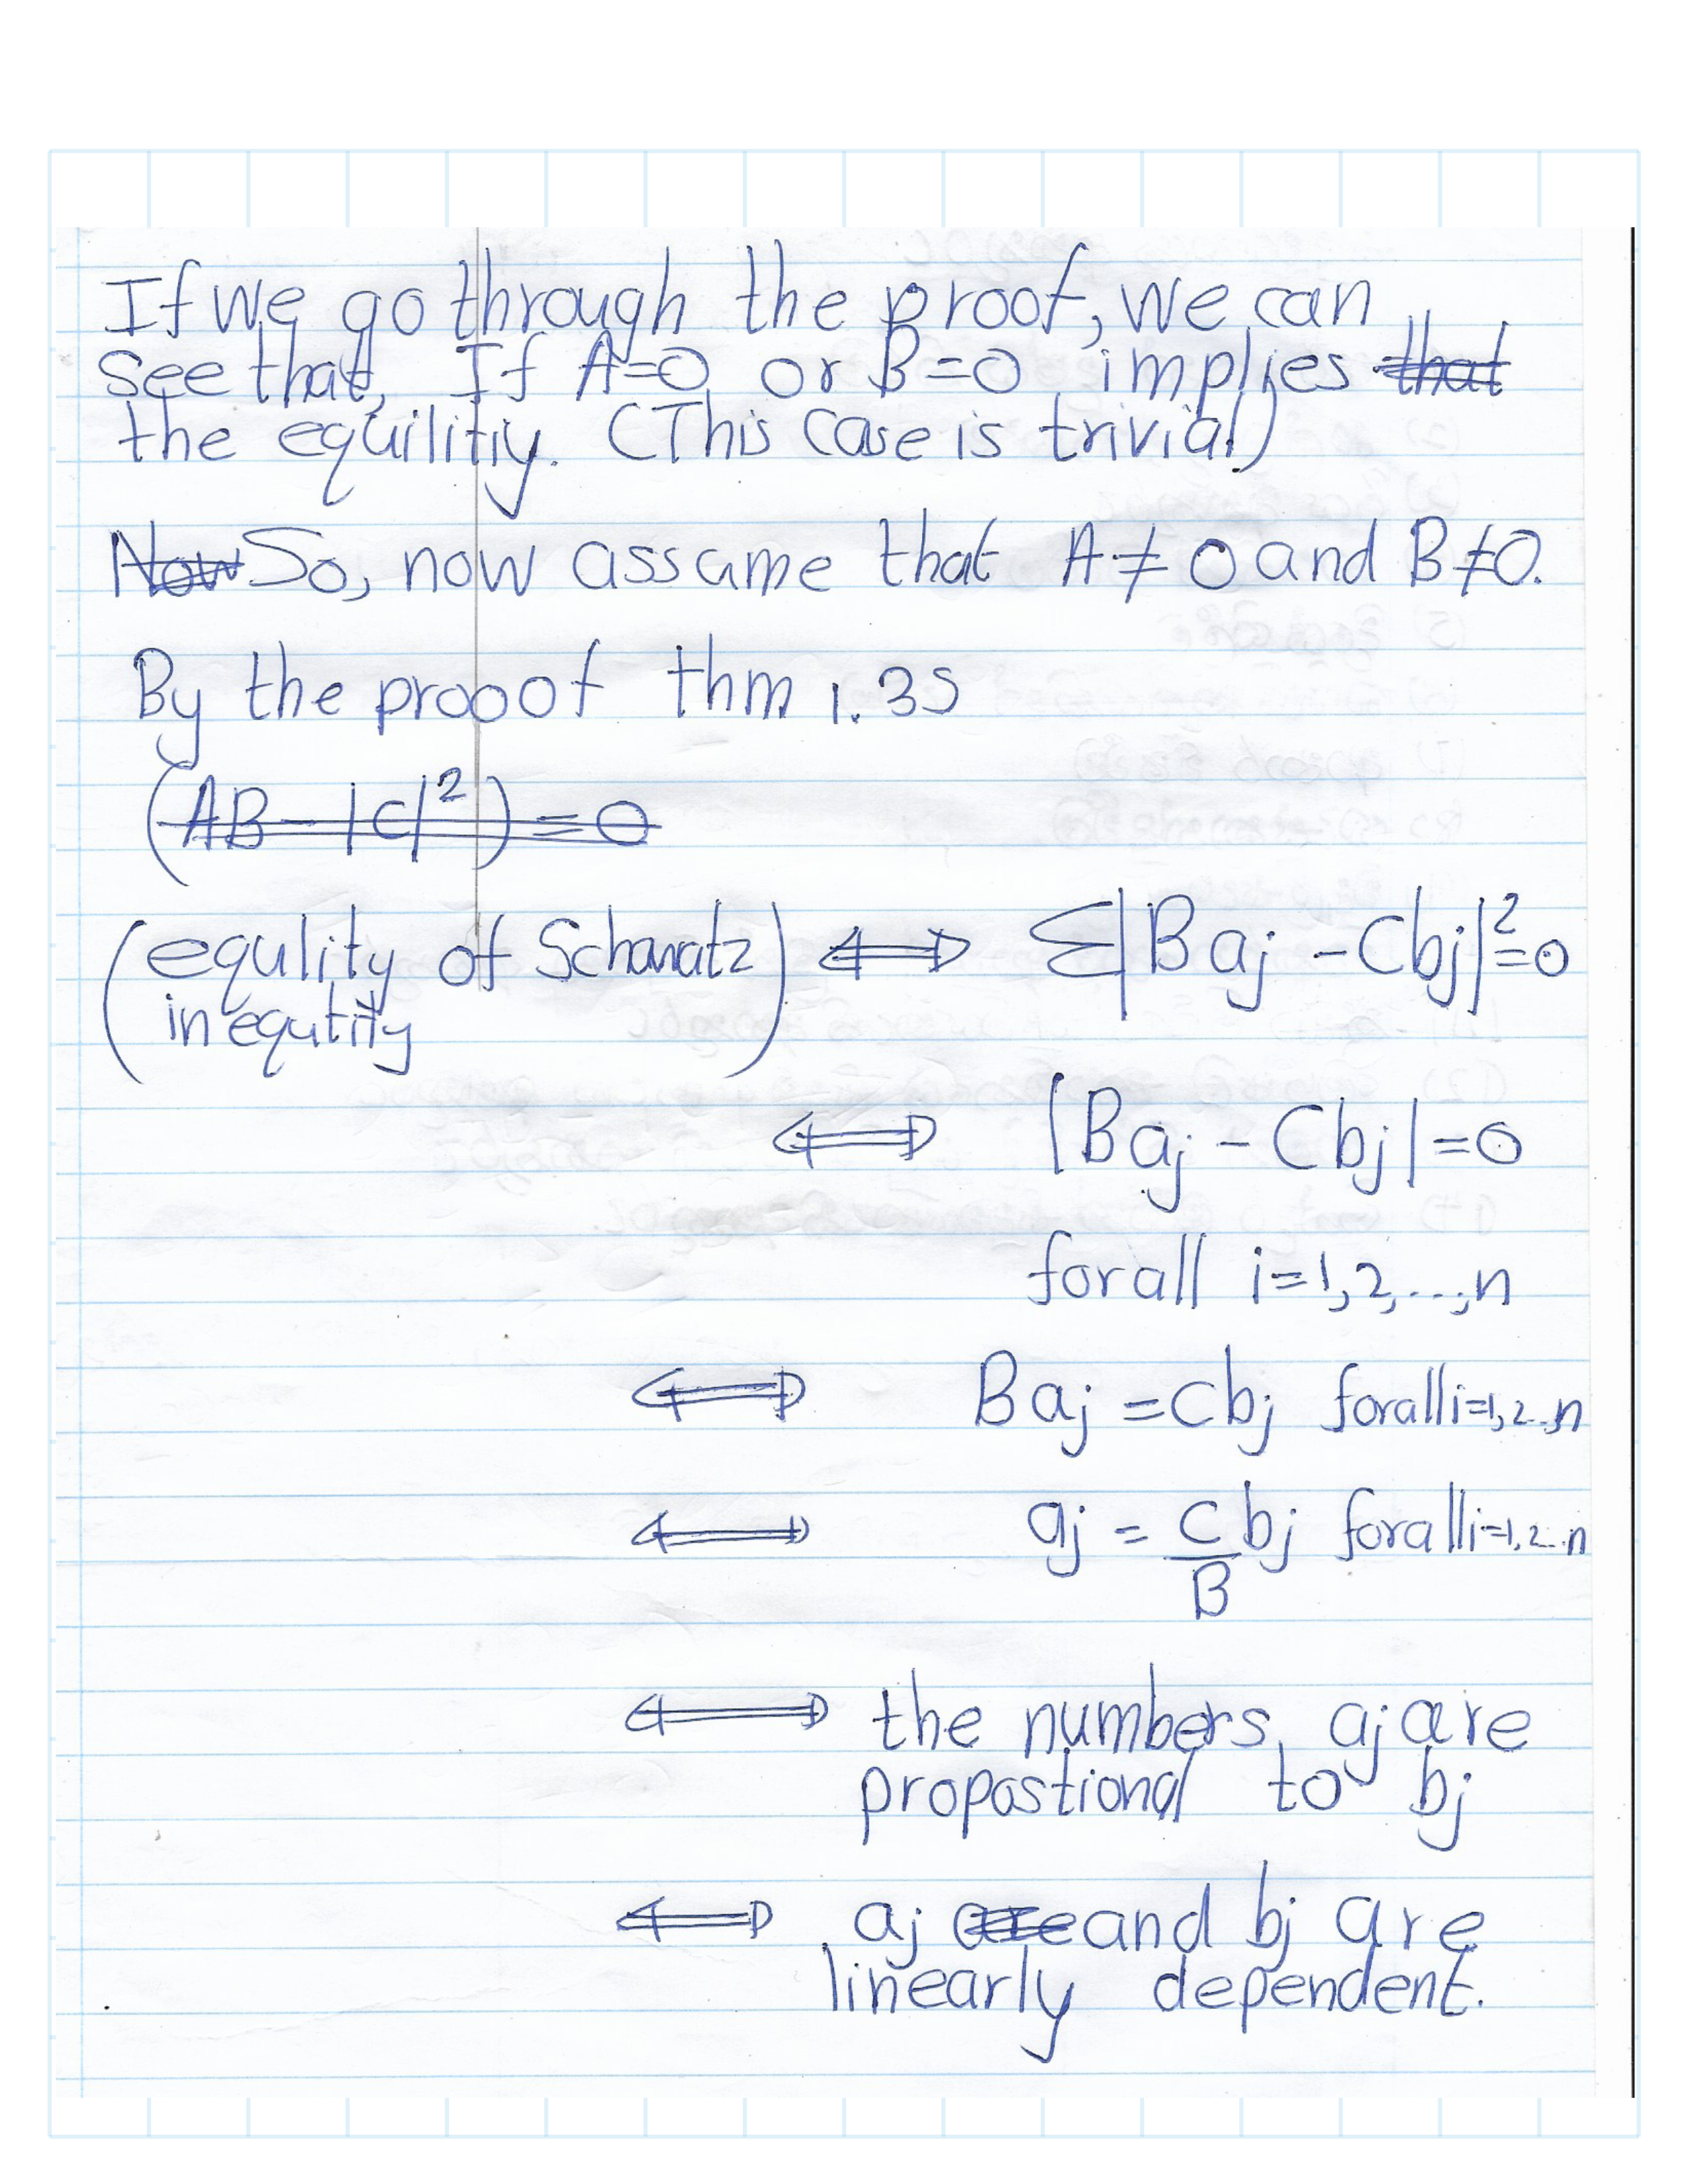 If we go through the proof, we can
see that, If A=0 or B=0 implies that
the equilitiy. (This case is trivial)
Now So, now assume that A≠0 and B≠0.
By the prooof thm 1.35
(AB-|C|²)=0
(equlity of Schwartz ⟺ Σ|Baj - Cbj|²=0
inequtity)
⟺ |Baj - Cbj|=0
for all i=1,2,...,n
⟺ Baj = Cbj for all i=1,2..,n
⟺ aj = C/B bj for all i=1,2...n
⟺ the numbers aj are
propostional to bj
⟺ aj are and bj are
linearly dependent.